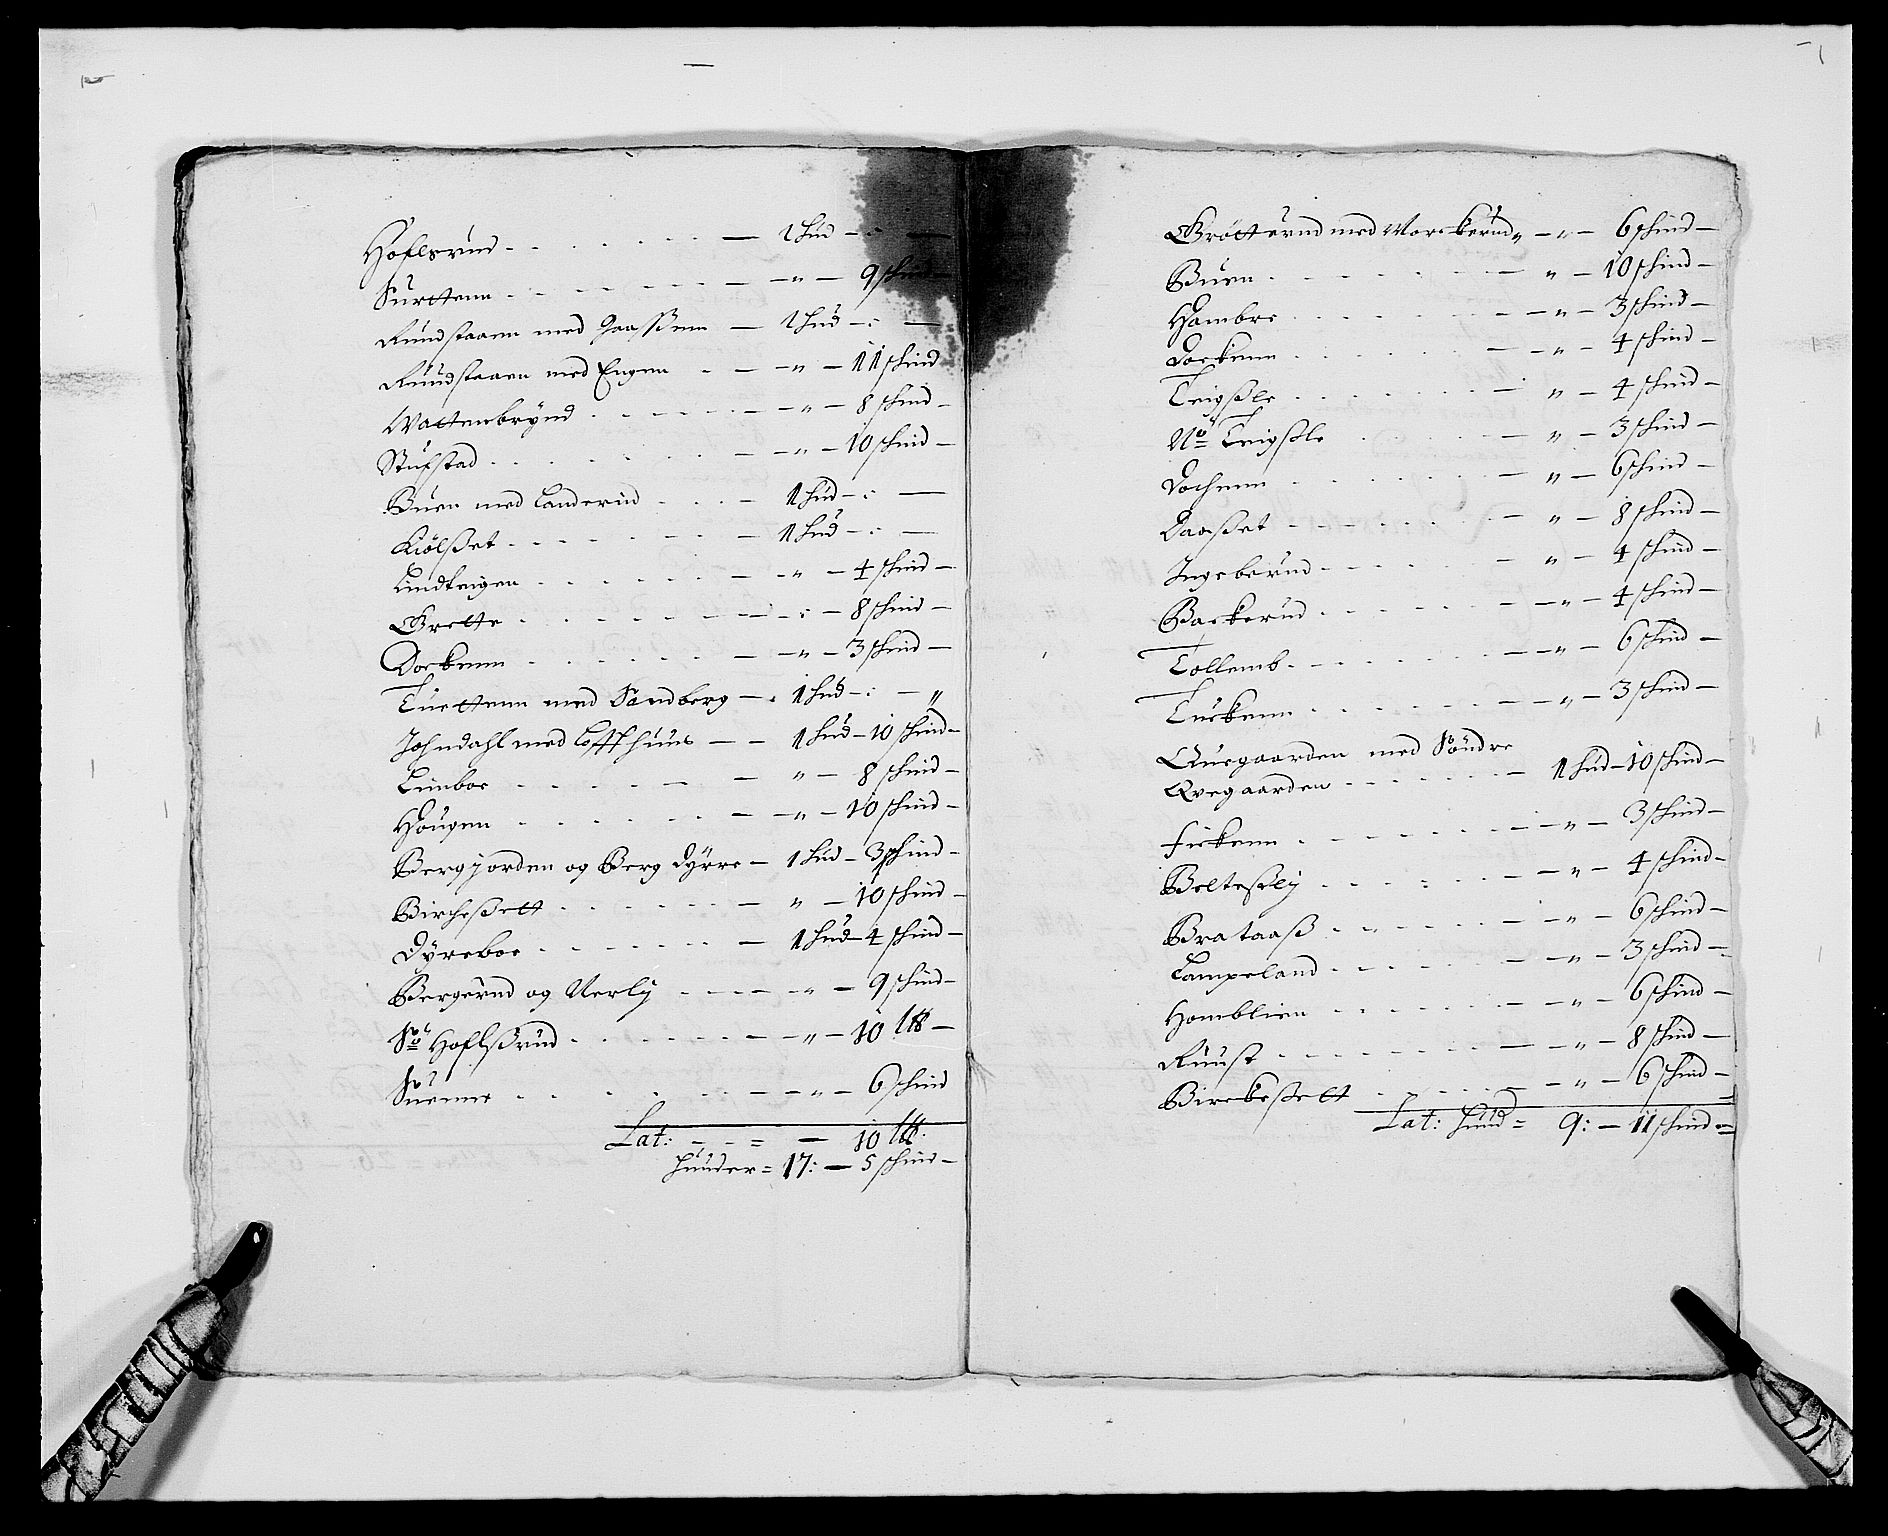 Hoflsrud - - - - - - - — 1 hud — : —
Surttenn - - - - - - - — „ — 9 schind —
Rundstaaen med Haassenn — 1 hud — : —
Ruudstaaen med Engen - — „ — 11 schind
Wattenbrynd - - - - - — „ — 8 schind —
Stufstad - - - - - - — „ — 10 schind —
Buen med Landerud - - - — 1 hud — : —
Kiölßet - - - - - - — 1 hud — : —
Lindteigen - - - - - — „ — 4 schind —
Grette - - - - - - — : — 8 schind —
Dockenn - - - - - — „ — 3 schind —
Tuettenn med Sandberg — 1 hud — : — „
Johndahl med Loffthuus — — 1 hud — 10 schind —
Limboe - - - — — „ — 8 schind —
Hougen - - - - - — „ — 10 schind —
Bergjorden og Berg Dyrre — 1 hud — 3 schind —
Bircheßett - - - - - — „ — 10 schind —
Dyreboe - - - - - — 1 hud — 4 schind —
Bergerud og Nerly - - — „ — 9 schind —
Sº Hoflßrud - - - - — „ — 10 lt͠b —
Suenne - - - - - — „ — 6 schind
Lat: - - = — 10 lt͠b:
Huuder = 17: — 5 schind —
Grötterud med Morskerud „ — „ — 6 schind —
Buen - - - - - - — „ — 10 schind —
Hambre - - - - - — „ — 3 schind —
Dockenn - - - - - — „ — 4 schind —
Teigßle - - - - - — „ — 4 schind —
Nº Teigßle - - - - — „ — 3 schind —
Dochenn - - - - - — „ — 6 schind —
Daaßet - - - - - — „ — 8 schind —
Ingeberud - - - - — „ — 4 schind —
Backerud - - - - - — „ — 4 schind —
Tollemb - - - - - — „ — 6 schind —
Tuckenn - - - - - — „ — 3 schind —
Quegaarden med Söndre
Qvegaarden - - - - - — 1 hud — 10 schind —
Fickenn - - - - - — „ — 3 schind —
Belteßly - - - - - — „ — 4 schind —
Brataaß - - - - - — „ — 6 schind —
Lampeland - - - - — „ — 3 schind —
Homblien - - - - - — „ — 6 schind —
Ruust - - - - - - — „ — 8 schind —
Birckeßett - - - - — „ — 6 schind —
Lat: Huud = 9: — 11 schind =